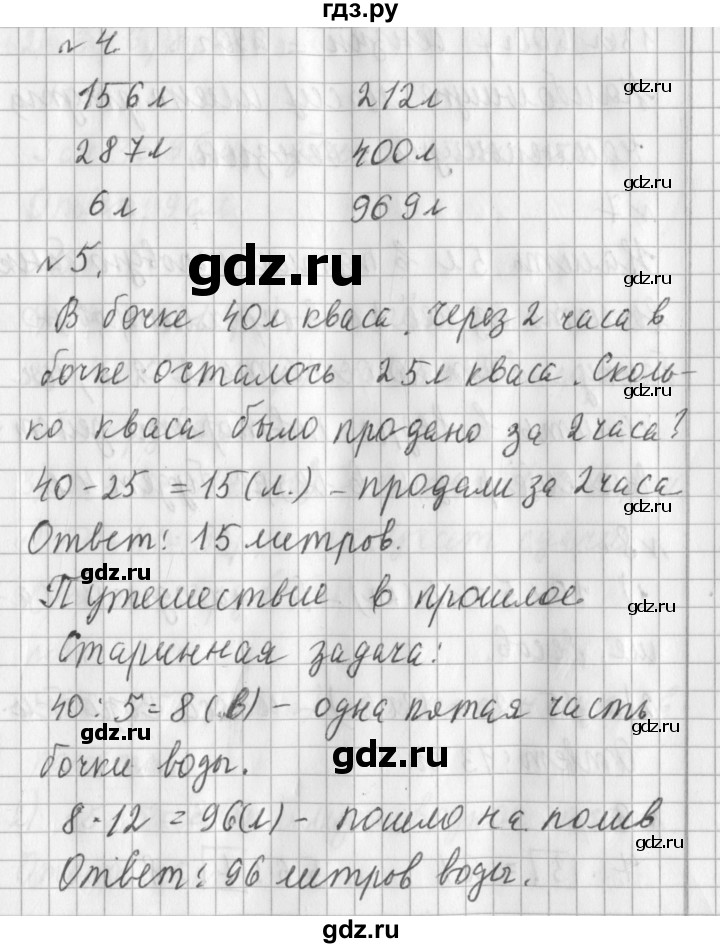 гдз.ру
№ 4.
156 л 212 л
gdz.ru
287 л 400 л
6 л 969 л
gdz.ru
№ 5.
gdz.ru
gdz.ru
В бочке 40 л кваса. Через 2 часа в
бочке осталось 25 л кваса. Сколь-
gdz.ru
ко кваса было продано за 2 часа?
40 - 25 = 15 (л.) - продали за 2 часа
gdz.ru
Ответ: 15 литров.
gdz.ru
Путешествие в прошлое
gdz.ru
Старинная задача:
40 : 5 = 8 (в) - одна пятая часть
gdz.ru
бочки воды.
gdz.ru
gdz.ru
8 · 12 = 96 (л) - пошло на полив
gdz.ru
Ответ: 96 литров воды.
gdz.ru